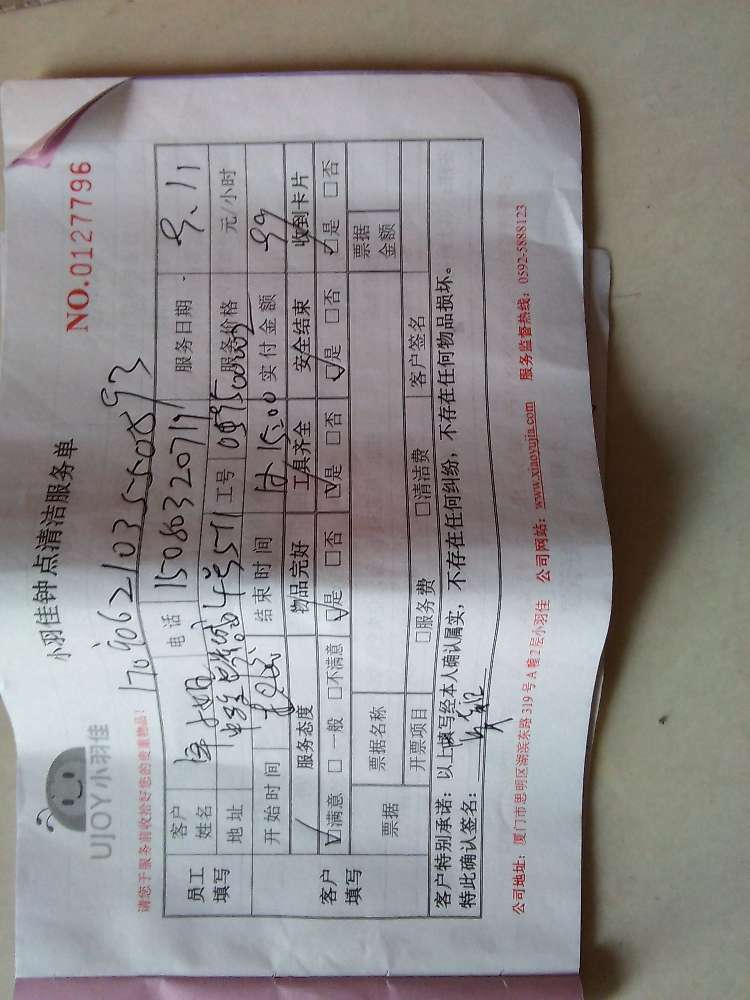 UJOY小羽佳
小羽佳钟点清洁服务单
NO.0127796
请您于服务前收拾好您的贵重物品!
员工填写
客户姓名
电话 15086320711
服务日期 9.11
地址
工号
服务价格 元/小时
开始时间
结束时间 15:00
实付金额 99
客户填写
服务态度 物品完好 工具齐全 安全结束 收到卡片
☑满意 □一般 □不满意 ☑是 □否 ☑是 □否 ☑是 □否 ☑是 □否
票据 票据名称 票据金额
开票项目 □服务费 □清洁费 客户签名
客户特别承诺：以上填写经本人确认属实，不存在任何纠纷，不存在任何物品损坏。
特此确认签名：
公司地址：厦门市思明区湖滨东路319号A幢2层小羽佳 公司网站：www.xiaoyujia.com 服务监督热线：0592-5888123